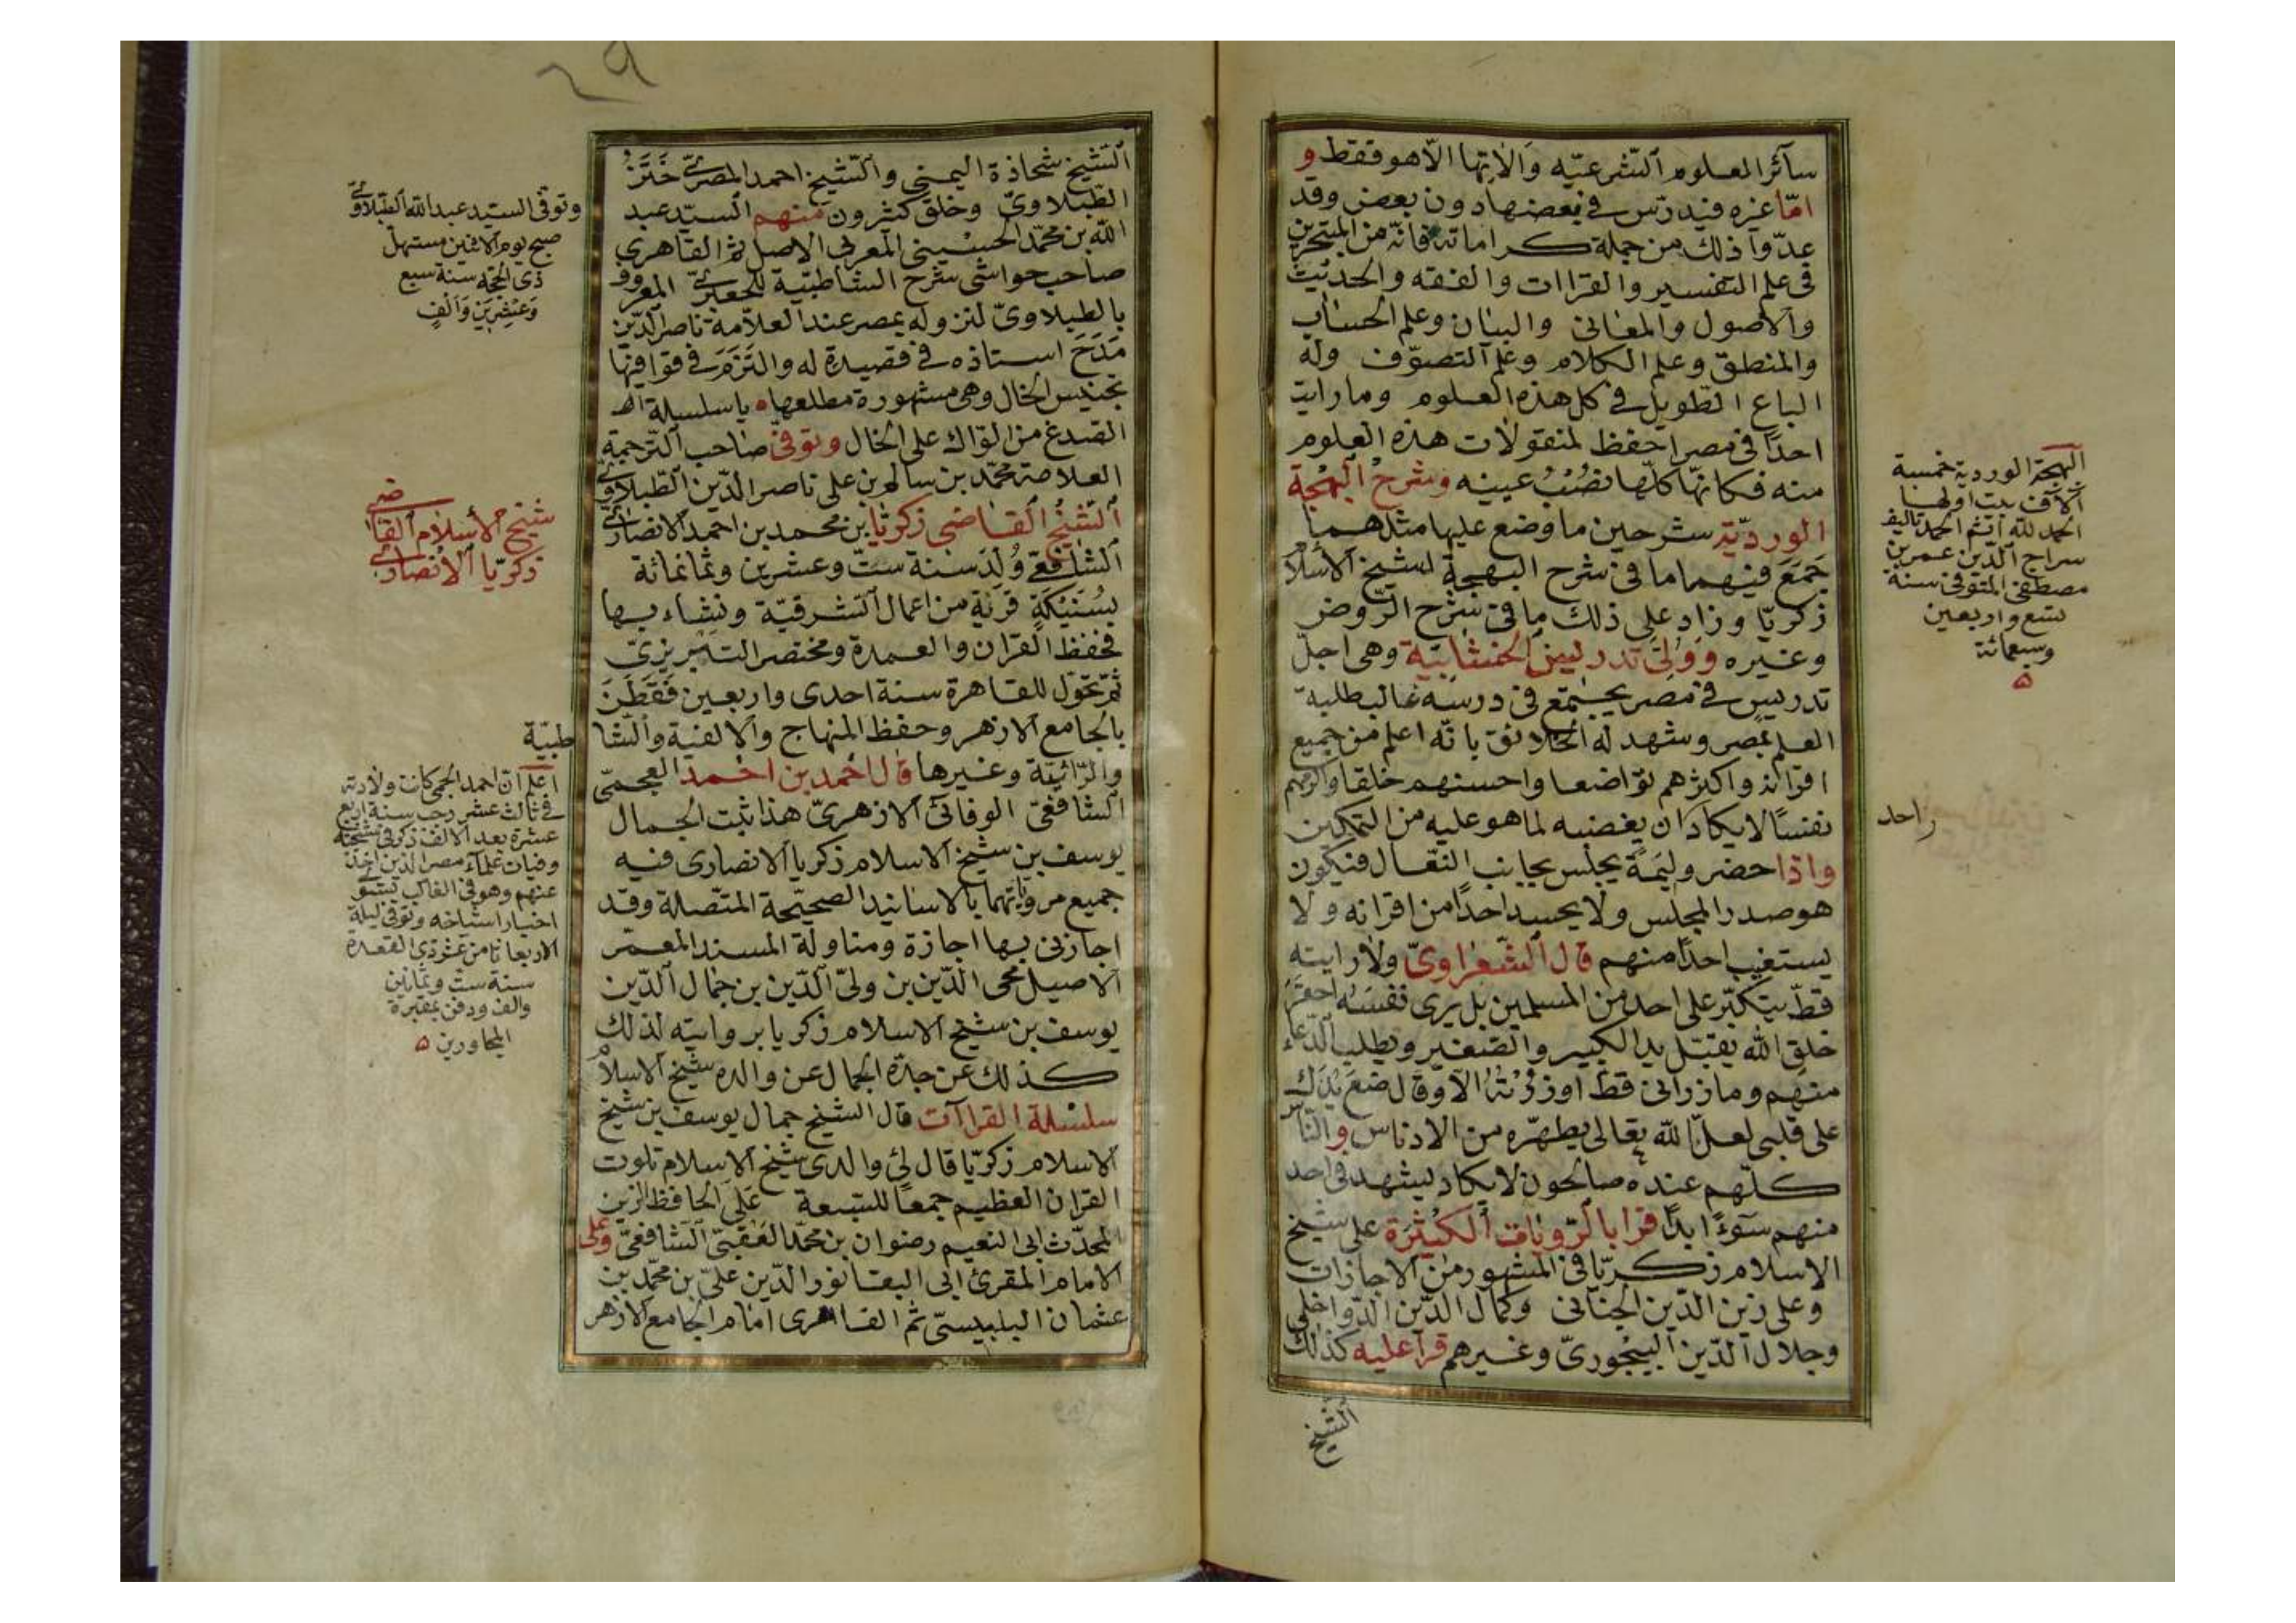 سآئر العلوم الشرعيّه وآلاتها الاّ هو فقط و
امّا غيره فيدرّس في بعضها دون بعض وقد
عدّوا ذلك من جملة كراماته فانّه من المتبحرين
في علم التفسير والقراات والفقه والحديث
والاصول والمعاني والبيان وعلم الحساب
والمنطق وعلم الكلام وعلم التصوّف وله
الباع الطويل في كل هذه العلوم وما رايت
احدًا في مصر احفظ لمنقولات هذه العلوم
منه فكانهّا كلّها نصُبُ عينيه وشرح البهجة
الورديّة شرحين ما وضع عليها مثلهما
جَمَعَ فيهما ما في شرح البهجة لشيخ الاسلام
زكريّا وزاد على ذلك ما في شرح الرّوض
وغيره وَوُلِّيَ تدريس الخشّابيّة وهي اجلّ
تدريس في مصر يجتمع في درسه غالب طلبة
العلم بمصر وشهد له الخلائق بانّه اعلم من جميع
اقرانه واكثرهم تواضعا واحسنهم خلقا واكرمهم
نفسًا لا يكاد ان يغضبه لما هو عليه من التمكين
واذا حضر وليمةً يجلس بجانب النعّال فيكون
هو صدر المجلس ولا يحسد احدًا من اقرانه ولا
يستغيب احدًا منهم قال الشّعراويّ ولا رايته
قطّ يتكبّر على احد من المسلمين بل يرى نفسَهُ احقرَ
خلقِ الله يقبّل يد الكبير والصّغير ويطلب الدّعاء
منهم وما زراني قطّ او زُرْتُهُ الاّ وقال ضع يدَك
على قلبي لعلّ الله تعالى يطهّره من الادناس والنّاس
كلّهم عنده صالحون لا يكاد يشهد في احد
منهم سوءًا ابدًا قرا بالرّوايات الكثيرة على شيخ
الاسلام زكريّا في المشهور من الاجازات
وعلى زين الدّين الجناني وكمال الدّين الدّواخلي
وجلال الدّين البيجوريّ وغيرهم قرا عليه كذلك
الشيخ
البهجة الوردية خمسة
آلاف بيت اولها
الحمد لله اتم الحمد تاليف
سراج الدّين عمر بن
مصطفى المتوفى سنة
تسع واربعين
وسبعمائة
احد
٢٩
الشّيخ شحاذة اليمني والشّيخ احمد المصريّ
الطّبلاويّ وخلق كثيرون منهم السيّد عبد
الله بن محمّد الحسيني المغربي الاصل ثم القاهري
صاحب حواشي شرح الشاطبيّة للجعبريّ المعروف
بالطبلاويّ لنزوله بمصر عند العلاّمة ناصر الدّين
مَدَحَ استاذه في قصيدة له والتَزَمَ في قوافيها
تجنيس الخال وهي مشهورة مطلعها يا سلسلة
الصّدغ من لوّاك على الخال وتوفّي صاحب الترجمة
العلامة محمّد بن سالم بن علي ناصر الدّين الطّبلاويّ
الشّيخ القاضي زكريّا بن محمد بن احمد الانصاريّ
الشّافعيّ وُلِدَ سنة ستّ وعشرين وثمانمائة
بسُنَيْكَة قرية من اعمال الشرقيّة ونشاء بها
فحفظ القران والعمدة ومختصر التبريزيّ
ثمّ تحوّل للقاهرة سنة احدى واربعين فقَطَنَ
بالجامع الازهر وحفظ المنهاج والالفية والشّا
طبيّة
والرّائيّة وغيرها قال احمد بن احمد العجميّ
الشافعيّ الوفائيّ الازهريّ هذا ثبت الجمال
يوسف بن شيخ الاسلام زكريا الانصاري فيه
جميع مرويّاتهما بالاسانيد الصحيحة المتّصلة وقد
اجازني بها اجازة ومناولة المسند المعمّر
الاصيل محي الدّين بن وليّ الدّين بن جمال الدّين
يوسف بن شيخ الاسلام زكريا بروايته لذلك
كذلك عن جدّه الجمال عن والده شيخ الاسلام
سلسلة القراآت قال الشيخ جمال يوسف بن شيخ
الاسلام زكريّا قال لي والدي شيخ الاسلام تلوت
القران العظيم جمعًا للسبعة على الحافظ الزين
المحدّث ابي النعيم رضوان بن محمّد العقبيّ الشافعيّ وعلى
الامام المقرئ ابي البقا نور الدّين عليّ بن محمّد بن
عثمان البلبيسيّ ثم القاهري امام الجامع الازهر
وتوفي السيّد عبد الله الطبلاويّ
صبح يوم الاثنين مستهلّ
ذي الحجّه سنة سبع
وَعِشْرِينَ وَأَلْفٍ
شيخ الاسلام القاضي
زكريّا الانصاريّ
اعلم ان احمد العجمي كانت ولادته
في ثالث عشر رجب سنة اربع
عشرة بعد الالف ذكر في مشيخته
وفيات علماء مصر الذين اخذ
عنهم وهو في الغالب
اخبار اشياخه وتوفي ليلة
الاربعا ثامن عشر ذي القعدة
سنة ست وثمانين
والف ودفن بمقبرة
المجاورين